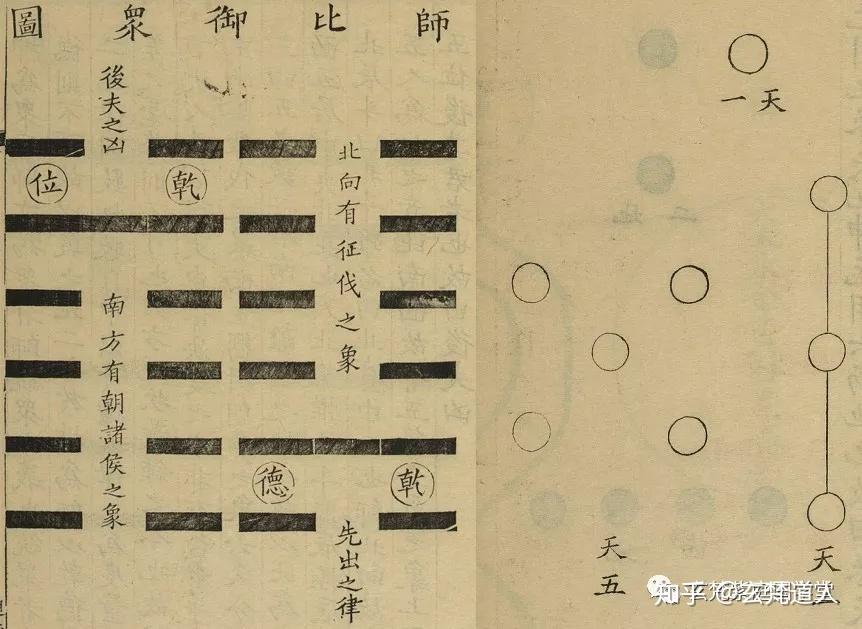 天一
天
天五
師比御眾圖
北向有征伐之象
乾德
先出之律
後夫之凶
乾位
南方有朝諸侯之象
知乎